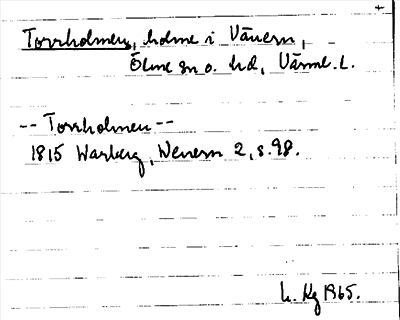 Torrholmen, holme i Vänern,
Ölme sn o. hd, Värml. L.
-- Torrholmen --
1815 Warberg, Wenern 2, s. 98.
L. Kg 1965.